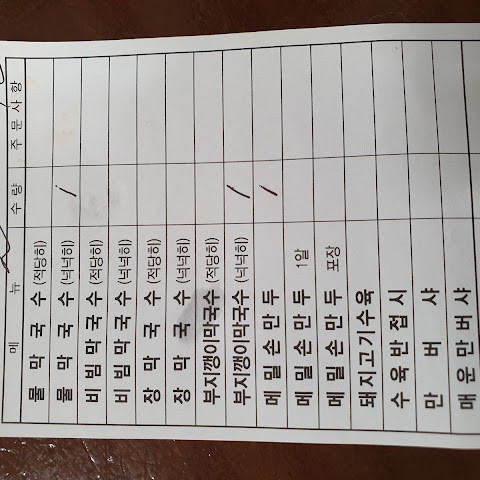 메 뉴 수 량 주 문 사 항
물 막 국 수 (적당히)
물 막 국 수 (넉넉히) /
비 빔 막 국 수 (적당히)
비 빔 막 국 수 (넉넉히)
장 막 국 수 (적당히)
장 막 국 수 (넉넉히)
부지깽이막국수 (적당히)
부지깽이막국수 (넉넉히) /
메 밀 손 만 두 /
메 밀 손 만 두 1알
메 밀 손 만 두 포장
돼지고기수육
수 육 반 접 시
만 버 샤
매 운 만 버 샤